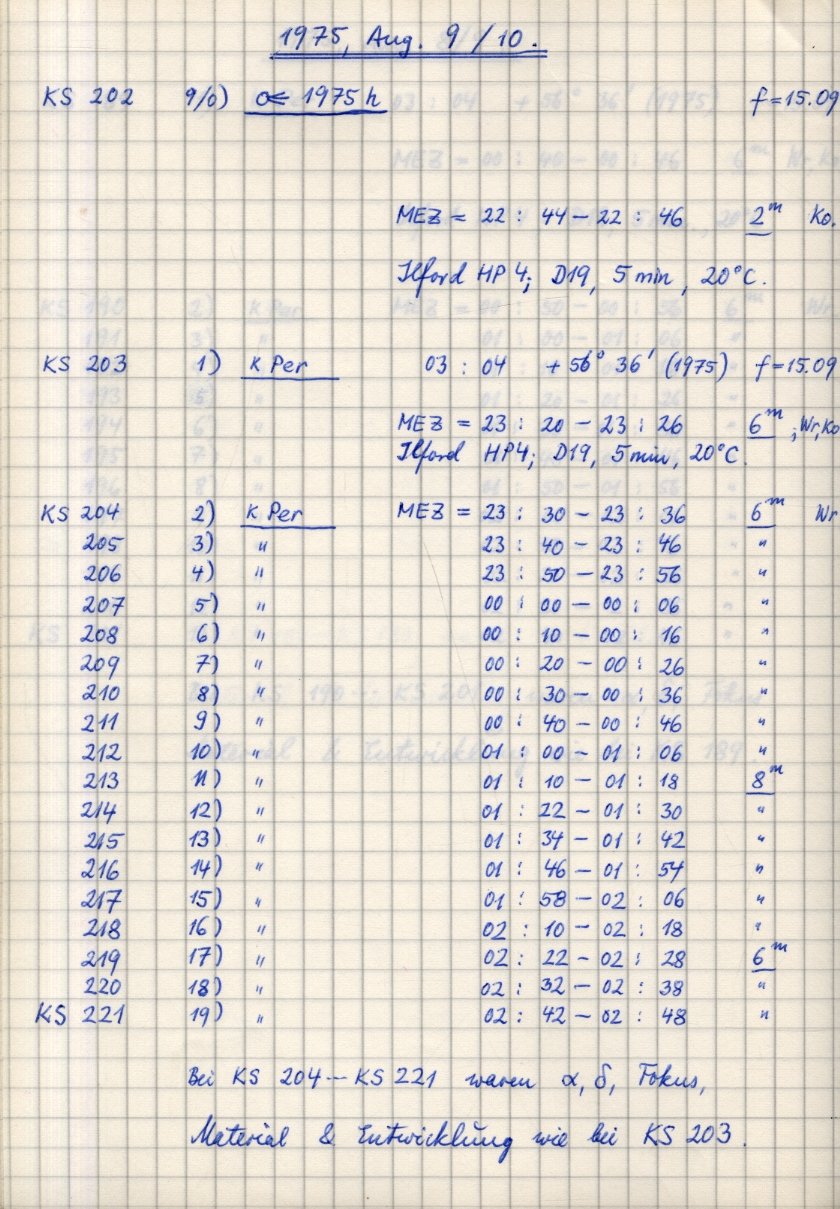 1975, Aug. 9/10.
KS 202 9/0) ☄ 1975 h f=15.09
MEZ = 22 : 44 – 22 : 46 2ᵐ Ko.
Ilford HP 4; D19, 5 min, 20°C.
KS 203 1) κ Per 03 : 04 + 56° 36' (1975) f=15.09
MEZ = 23 : 20 – 23 : 26 6ᵐ ; Wr, Ko
Ilford HP4; D19, 5 min, 20°C.
KS 204 2) κ Per MEZ = 23 : 30 – 23 : 36 6ᵐ Wr
205 3) " 23 : 40 – 23 : 46 "
206 4) " 23 : 50 – 23 : 56 "
207 5) " 00 : 00 – 00 : 06 "
208 6) " 00 : 10 – 00 : 16 "
209 7) " 00 : 20 – 00 : 26 "
210 8) " 00 : 30 – 00 : 36 "
211 9) " 00 : 40 – 00 : 46 "
212 10) " 01 : 00 – 01 : 06 "
213 11) " 01 : 10 – 01 : 18 8ᵐ
214 12) " 01 : 22 – 01 : 30 "
215 13) " 01 : 34 – 01 : 42 "
216 14) " 01 : 46 – 01 : 54 "
217 15) " 01 : 58 – 02 : 06 "
218 16) " 02 : 10 – 02 : 18 "
219 17) " 02 : 22 – 02 : 28 6ᵐ
220 18) " 02 : 32 – 02 : 38 "
KS 221 19) " 02 : 42 – 02 : 48 "
Bei KS 204 -- KS 221 waren α, δ, Fokus,
Material & Entwicklung wie bei KS 203.